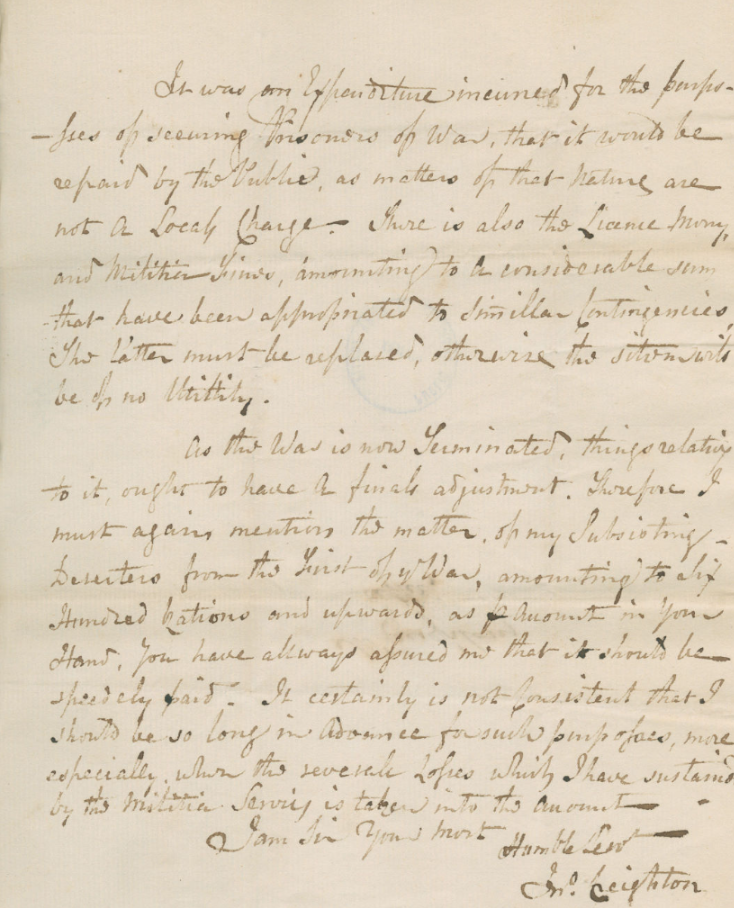 It was an Expenditure incurred for the purpo-
-sses of securing Prisoners of War, that it would be
repaid by the Public, as matters of that Nature are
not a Local Charge. There is also the Licence Mony,
and Militia Fines, amounting to a considerable sum
that have been appropriated to Simillar Contingencies,
The latter must be replased, otherwise the
be of no Utility.
As the War is now Terminated, things relative
to it, ought to have a final adjustment. Therefore I
must again mention the matter, of my Subsisting
Deserters from the First of ye War, amounting to Six
Hundred Rations and upwards, as pr Account in Your
Hand, You have allways assured me that it should be
speedely paid. It certainly is not Consistent that I
should be so long in Advance for such purposses, more
especially, when the severale Losses which I have sustaind
by the Militia Service is taken into the Account
I am Sir Your most Humble Servt
Jno. Creighton